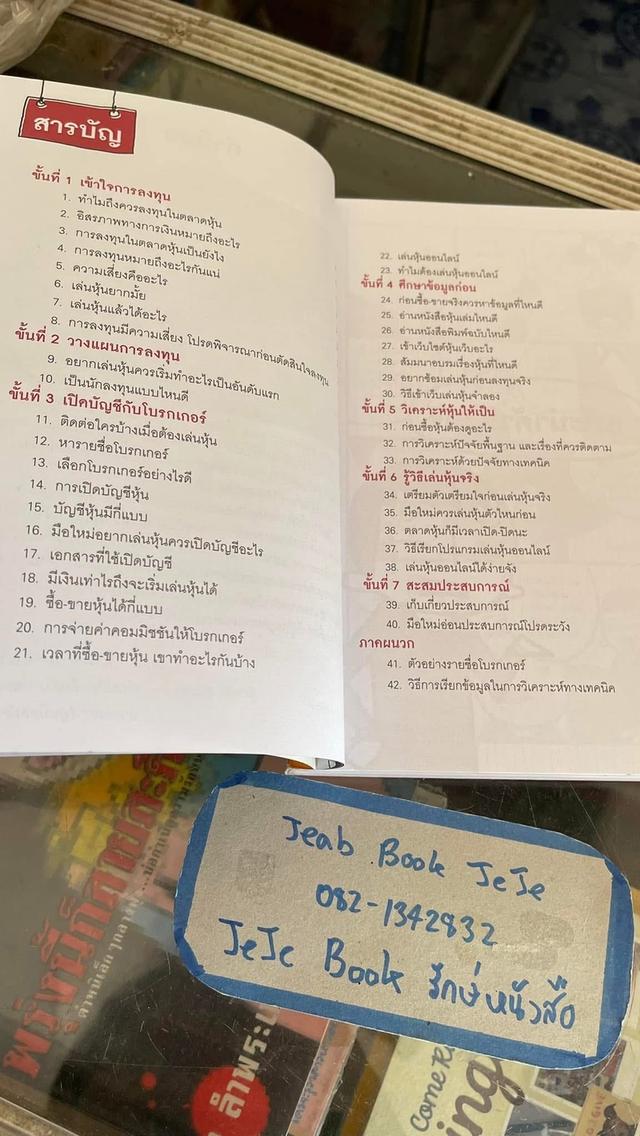 สารบัญ
ขั้นที่ 1 เข้าใจการลงทุน
1. ทำไมถึงควรลงทุนในตลาดหุ้น
2. อิสรภาพทางการเงินหมายถึงอะไร
3. การลงทุนในตลาดหุ้นเป็นยังไง
4. การลงทุนหมายถึงอะไรกันแน่
5. ความเสี่ยงคืออะไร
6. เล่นหุ้นยากมั้ย
7. เล่นหุ้นแล้วได้อะไร
8. การลงทุนมีความเสี่ยง โปรดพิจารณาก่อนตัดสินใจลงทุน
ขั้นที่ 2 วางแผนการลงทุน
9. อยากเล่นหุ้นควรเริ่มทำอะไรเป็นอันดับแรก
10. เป็นนักลงทุนแบบไหนดี
ขั้นที่ 3 เปิดบัญชีกับโบรกเกอร์
11. ติดต่อใครบ้างเมื่อต้องเล่นหุ้น
12. หารายชื่อโบรกเกอร์
13. เลือกโบรกเกอร์อย่างไรดี
14. การเปิดบัญชีหุ้น
15. บัญชีหุ้นมีกี่แบบ
16. มือใหม่อยากเล่นหุ้นควรเปิดบัญชีอะไร
17. เอกสารที่ใช้เปิดบัญชี
18. มีเงินเท่าไรถึงจะเริ่มเล่นหุ้นได้
19. ซื้อ-ขายหุ้นได้กี่แบบ
20. การจ่ายค่าคอมมิชชันให้โบรกเกอร์
21. เวลาที่ซื้อ-ขายหุ้น เขาทำอะไรกันบ้าง
22. เล่นหุ้นออนไลน์
23. ทำไมต้องเล่นหุ้นออนไลน์
ขั้นที่ 4 ศึกษาข้อมูลก่อน
24. ก่อนซื้อ-ขายจริงควรหาข้อมูลที่ไหนดี
25. อ่านหนังสือหุ้นเล่มไหนดี
26. อ่านหนังสือพิมพ์ฉบับไหนดี
27. เข้าเว็บไซต์หุ้นเว็บอะไร
28. สัมมนาอบรมเรื่องหุ้นที่ไหนดี
29. อยากซ้อมเล่นหุ้นก่อนลงทุนจริง
30. วิธีเข้าเว็บเล่นหุ้นจำลอง
ขั้นที่ 5 วิเคราะห์หุ้นให้เป็น
31. ก่อนซื้อหุ้นต้องดูอะไร
32. การวิเคราะห์ปัจจัยพื้นฐาน และเรื่องที่ควรติดตาม
33. การวิเคราะห์ด้วยปัจจัยทางเทคนิค
ขั้นที่ 6 รู้วิธีเล่นหุ้นจริง
34. เตรียมตัวเตรียมใจก่อนเล่นหุ้นจริง
35. มือใหม่ควรเล่นหุ้นตัวไหนก่อน
36. ตลาดหุ้นก็มีเวลาเปิด-ปิดนะ
37. วิธีเรียกโปรแกรมเล่นหุ้นออนไลน์
38. เล่นหุ้นออนไลน์ได้ง่ายจัง
ขั้นที่ 7 สะสมประสบการณ์
39. เก็บเกี่ยวประสบการณ์
40. มือใหม่อ่อนประสบการณ์โปรดระวัง
ภาคผนวก
41. ตัวอย่างรายชื่อโบรกเกอร์
42. วิธีการเรียกข้อมูลในการวิเคราะห์ทางเทคนิค
Jeab Book JeJe
082-1342832
JeJe Book รักษ์หนังสือ
พรุ่งนี้ก็สายเสีย
ลำพระเ
Come
ing